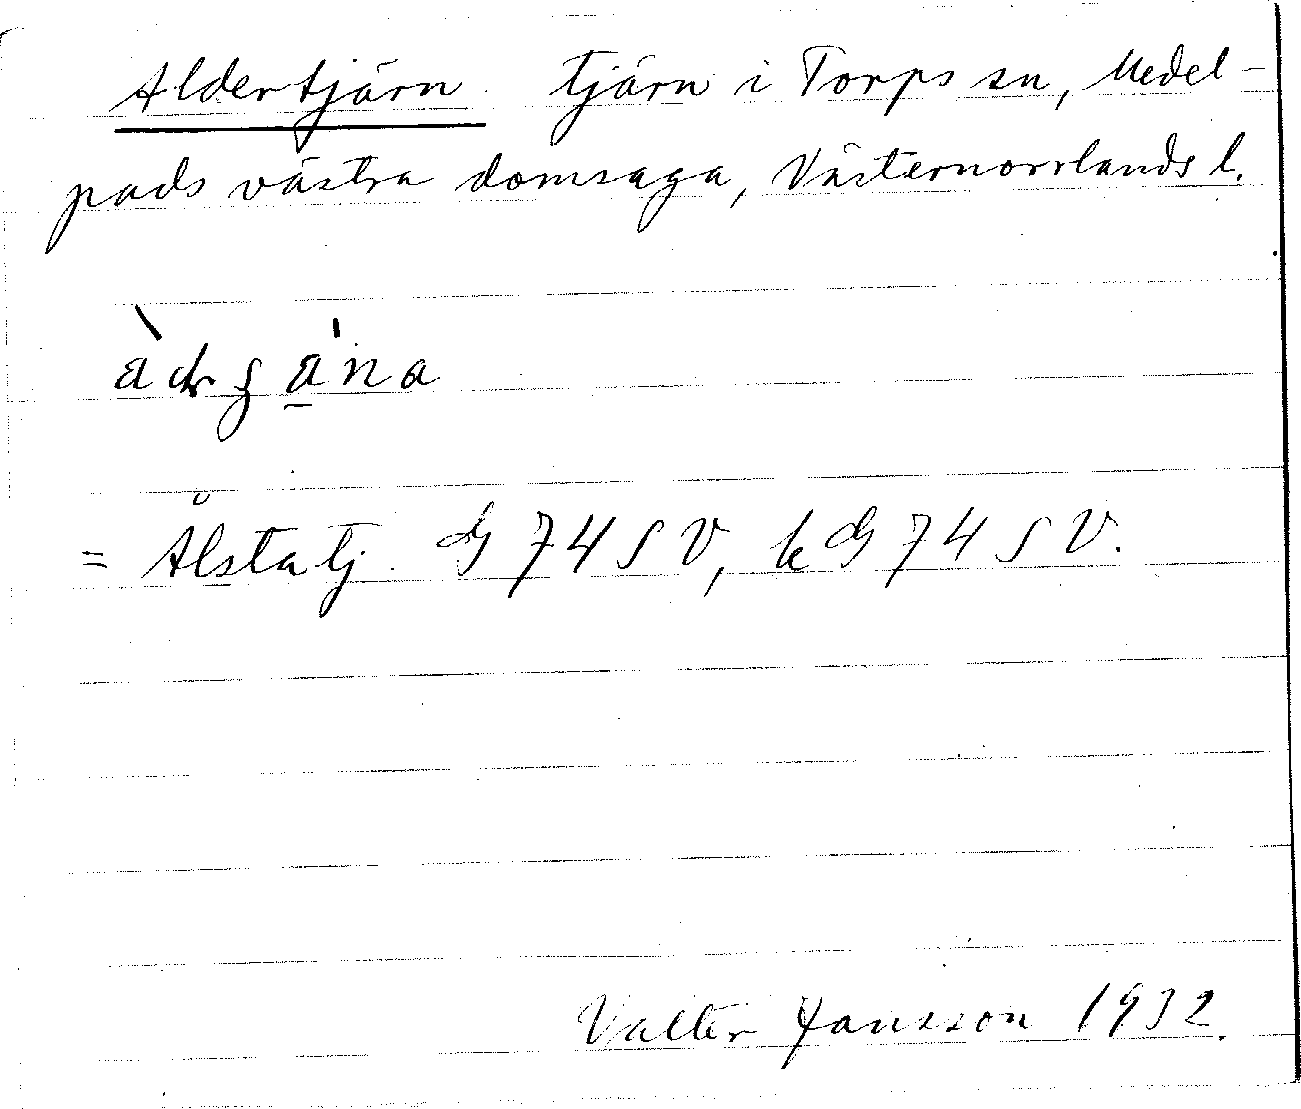 Aldertjärn tjärn i Torps sn, Medel-
pads västra domsaga, Västernorrlands l.
= Ålstatj. G 74 SV, k G 74 SV.
Valter Jansson 1932.